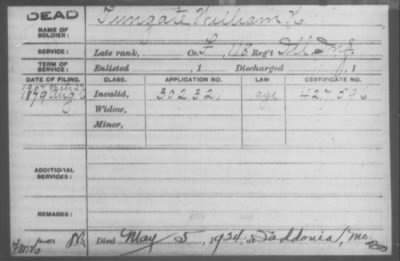 DEAD
NAME OF
SOLDIER:
Tungate William H.
SERVICE:
Late rank, Co. F, 118 Reg't Ill Inf.
TERM OF
SERVICE:
Enlisted , 1 Discharged , 1
DATE OF FILING. CLASS. APPLICATION NO. LAW. CERTIFICATE NO.
1879 Aug Invalid, 302321 age
Widow,
Minor,
ADDITIONAL
SERVICES:
REMARKS:
Died May 5, 1924, Mo.